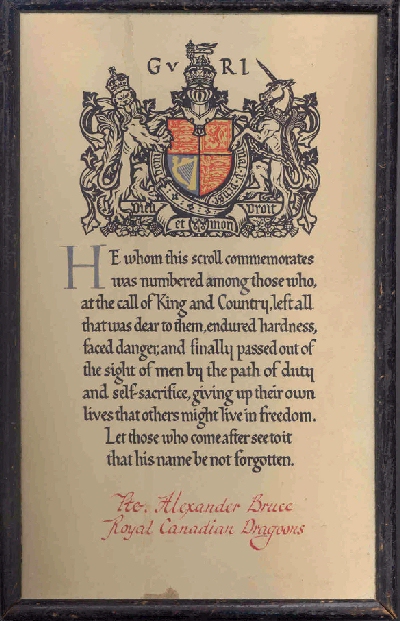 G V R I
Dieu et Mon Droit
HE whom this scroll commemorates
was numbered among those who,
at the call of King and Country, left all
that was dear to them, endured hardness,
faced danger, and finally passed out of
the sight of men by the path of duty
and self-sacrifice, giving up their own
lives that others might live in freedom.
Let those who come after see to it
that his name be not forgotten.
Pte. Alexander Bruce
Royal Canadian Dragoons